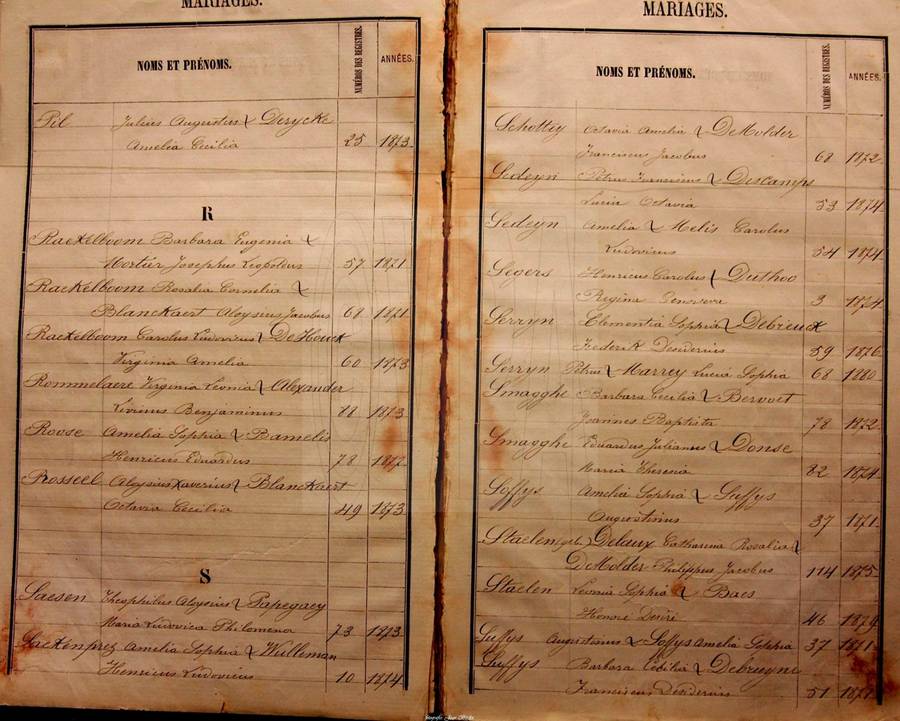 MARIAGES.
NOMS ET PRÉNOMS.
NUMÉROS DES REGISTRES.
ANNÉES.
Pil Julius Augustus & Derycke
Amelia Cecilia 25 1873
R
Raekelboom Barbara Eugenia &
Mortier Josephus Leopoldus 57 1871
Raekelboom Rosalia Cornelia &
Blanckaert Aloysius Jacobus 68 1871
Raekelboom Carolus Ludovicus & DeHouck
Virginia Amelia 60 1873
Rommelaere Virginia Leonia & Alexander
Livinus Benjaminus 1873
Roose Amelia Sophia & Bamelis
Henricus Eduardus 78 1877
Rosseel Aloysius Xaverius & Blanckaert
Octavia Cecilia 49 1873
S
Saesen Theophilus Aloysius & Papegaey
Maria Ludovica Philomena 73 1873
Sackenprez Amelia Sophia & Wulleman
Henricus Ludovicus 10 1874
MARIAGES.
NOMS ET PRÉNOMS.
NUMÉROS DES REGISTRES.
ANNÉES.
Schottey Octavia Amelia & DeMolder
Franciscus Jacobus 68 1872
Sedeyn Petrus Franciscus & Descamps
Lucia Octavia 53 1874
Sedeyn Amelia & Melis Carolus
Ludovicus 54 1874
Segers Henricus Carolus & Duthoo
Regina Genoveva 3 1874
Serryn Clementia Sophia & Debrieuck
Frederik Desiderius 59 1876
Serryn Petrus & Marrey Lucia Sophia 68 1880
Smagghe Barbara Cecilia & Bervoet
Joannes Baptista 78 1872
Smagghe Eduardus Julianus & Donse
Maria Theresia 82 1874
Soffys Amelia Sophia & Suffys
Augustinus 37 1871
Staelen Delaux Catharina Rosalia &
DeMolder Philippus Jacobus 114 1875
Staelen Leonia Sophia & Baes
Honoré Desiré 46 1879
Suffys Augustinus & Soffys Amelia Sophia 37 1871
Suffys Barbara Cecilia & Debruyne
Franciscus Desiderius 51 1877